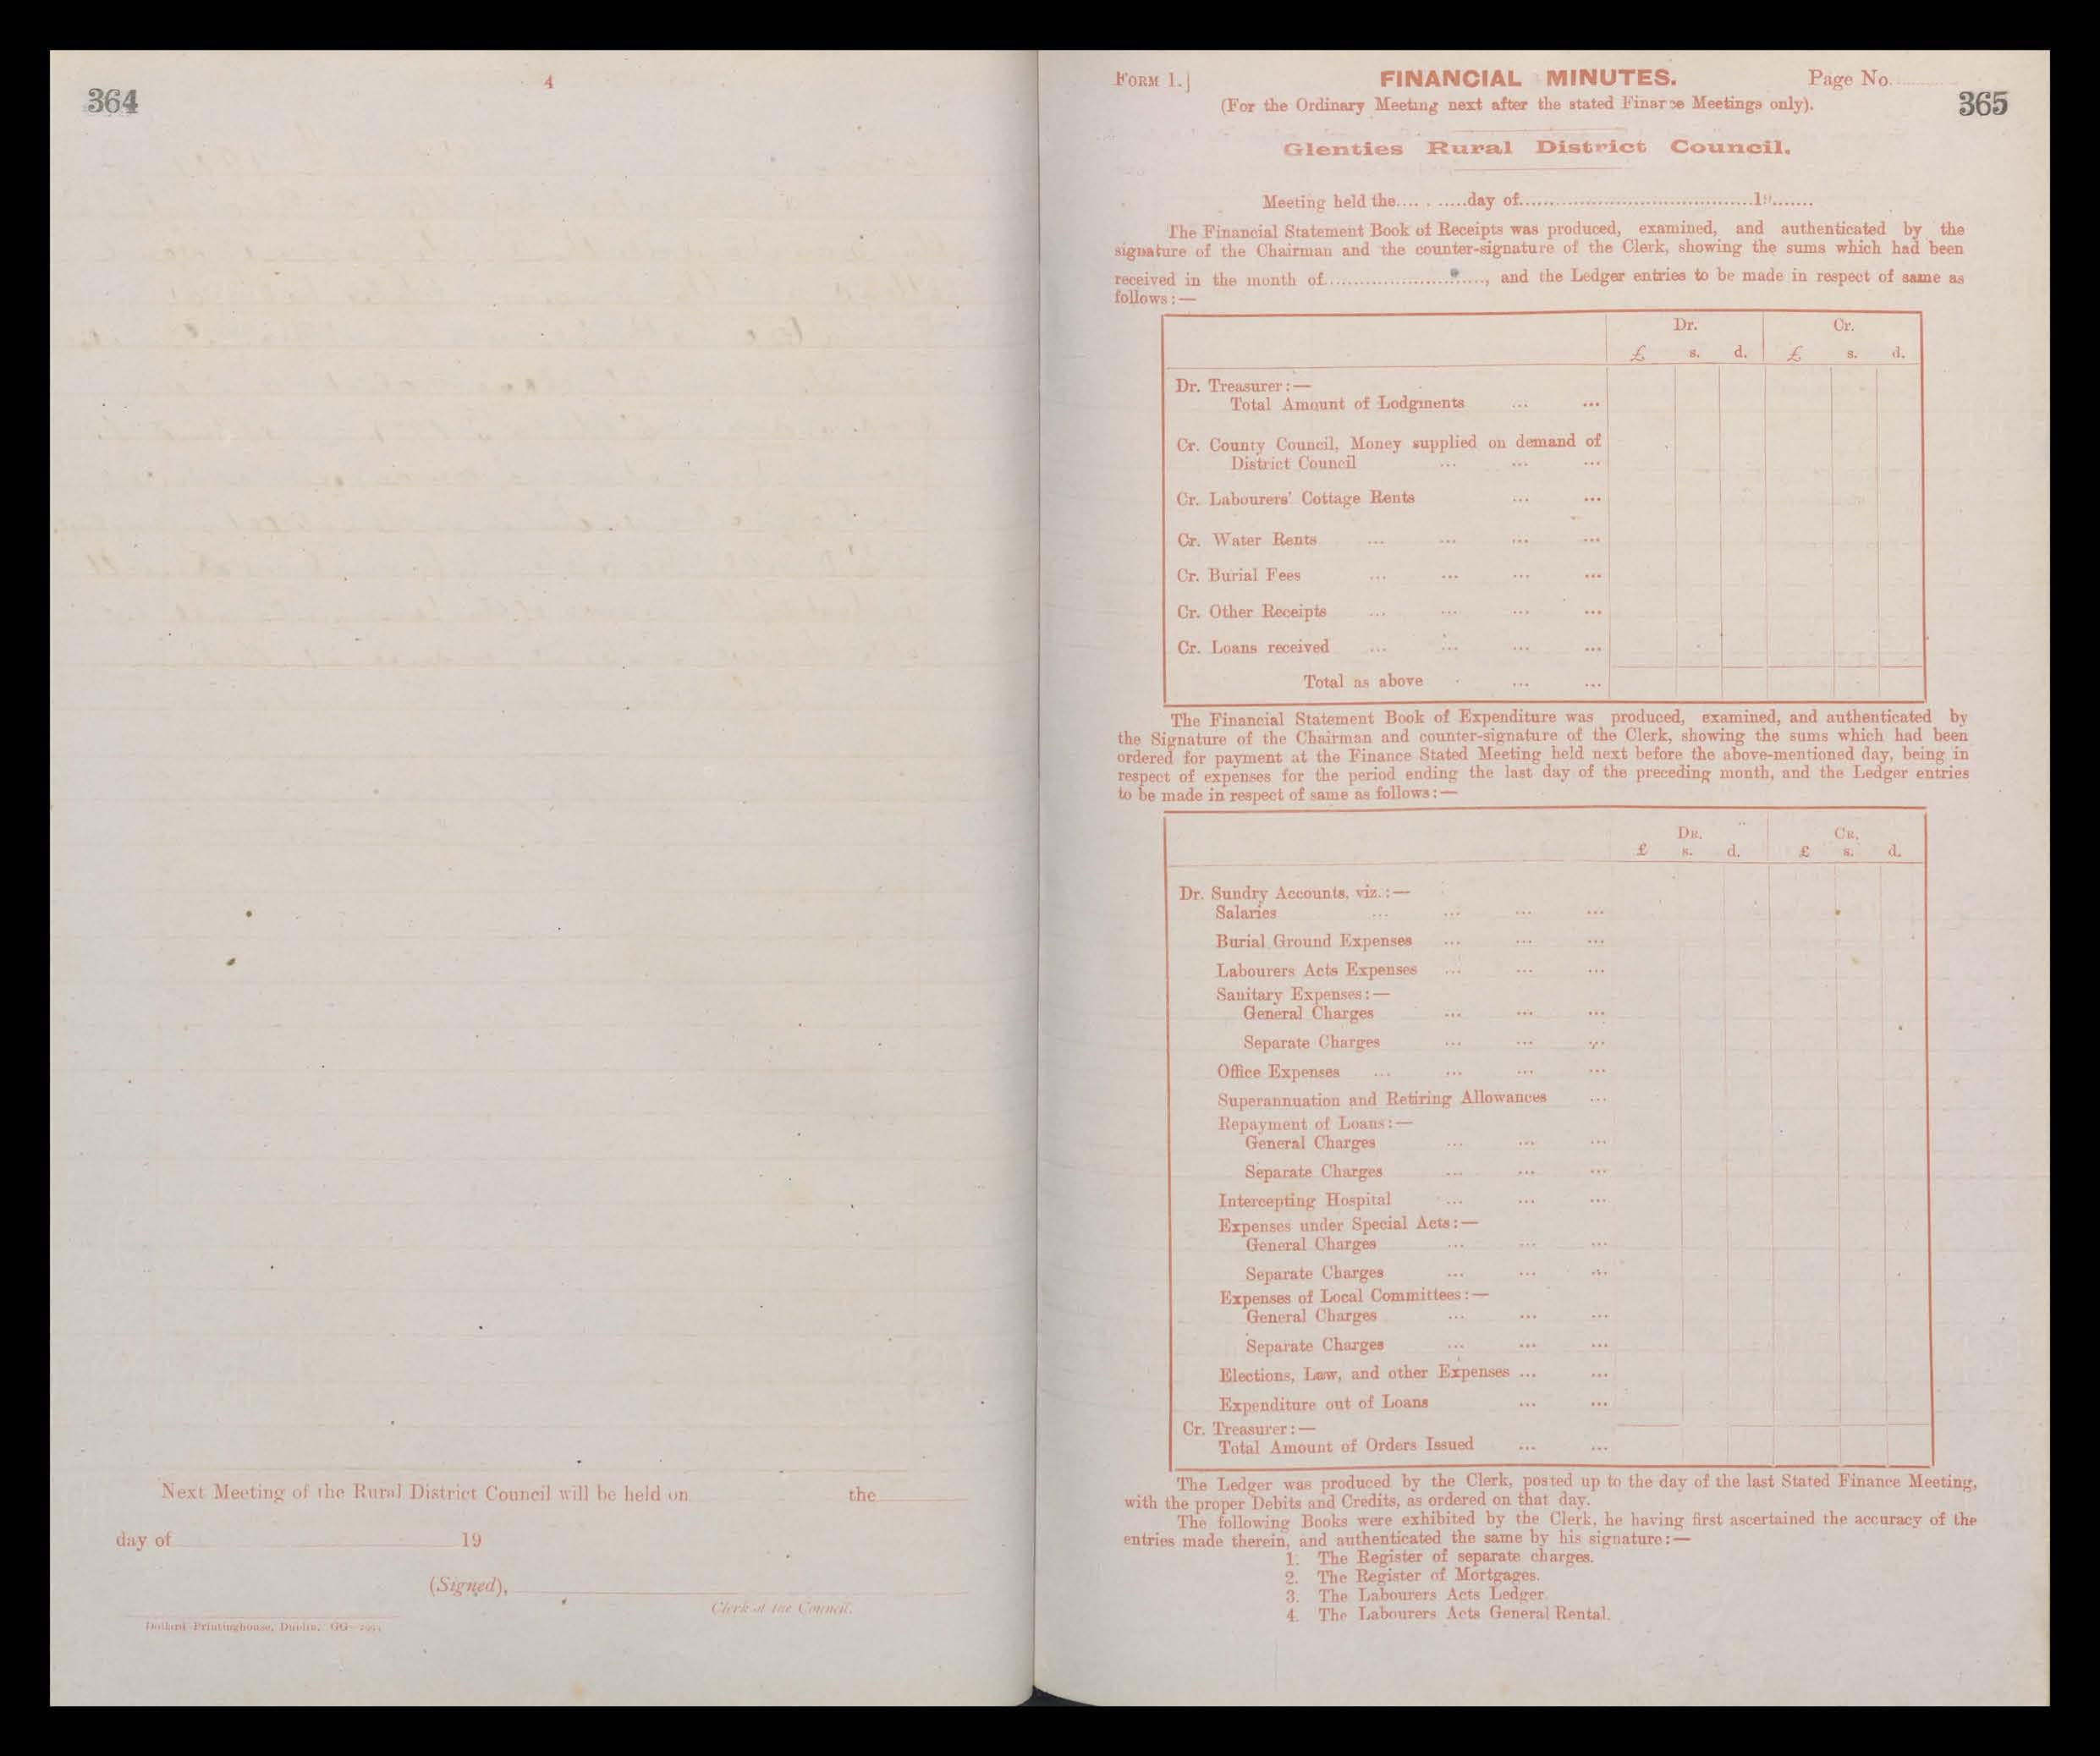 364
4
Next Meeting of the Rural District Council will be held on the
day of 19
(Signed),
Clerk of the Council.
Dollard Printinghouse, Dublin. GG
FORM 1.]
FINANCIAL MINUTES.
Page No.
365
(For the Ordinary Meeting next after the stated Finance Meetings only).
Glenties Rural District Council.
Meeting held the.... . .....day of........................................19.......
The Financial Statement Book of Receipts was produced, examined, and authenticated by the
signature of the Chairman and the counter-signature of the Clerk, showing the sums which had been
received in the month of............................, and the Ledger entries to be made in respect of same as
follows:—
Dr. Cr.
£ s. d. £ s. d.
Dr. Treasurer:—
Total Amount of Lodgments ... ...
Cr. County Council, Money supplied on demand of
District Council ... ... ...
Cr. Labourers' Cottage Rents ... ...
Cr. Water Rents ... ... ... ...
Cr. Burial Fees ... ... ... ...
Cr. Other Receipts ... ... ... ...
Cr. Loans received ... ... ... ...
Total as above ... ...
The Financial Statement Book of Expenditure was produced, examined, and authenticated by
the Signature of the Chairman and counter-signature of the Clerk, showing the sums which had been
ordered for payment at the Finance Stated Meeting held next before the above-mentioned day, being in
respect of expenses for the period ending the last day of the preceding month, and the Ledger entries
to be made in respect of same as follows:—
DR. CR.
£ s. d. £ s. d.
Dr. Sundry Accounts, viz.:—
Salaries ... ... ... ...
Burial Ground Expenses ... ... ...
Labourers Acts Expenses ... ... ...
Sanitary Expenses:—
General Charges ... ... ...
Separate Charges ... ... ...
Office Expenses ... ... ... ...
Superannuation and Retiring Allowances ...
Repayment of Loans:—
General Charges ... ... ...
Separate Charges ... ... ...
Intercepting Hospital ... ... ...
Expenses under Special Acts:—
General Charges ... ... ...
Separate Charges ... ... ...
Expenses of Local Committees:—
General Charges ... ... ...
Separate Charges ... ... ...
Elections, Law, and other Expenses ... ...
Expenditure out of Loans ... ...
Cr. Treasurer:—
Total Amount of Orders Issued ... ...
The Ledger was produced by the Clerk, posted up to the day of the last Stated Finance Meeting,
with the proper Debits and Credits, as ordered on that day.
The following Books were exhibited by the Clerk, he having first ascertained the accuracy of the
entries made therein, and authenticated the same by his signature:—
1. The Register of separate charges.
2. The Register of Mortgages.
3. The Labourers Acts Ledger.
4. The Labourers Acts General Rental.